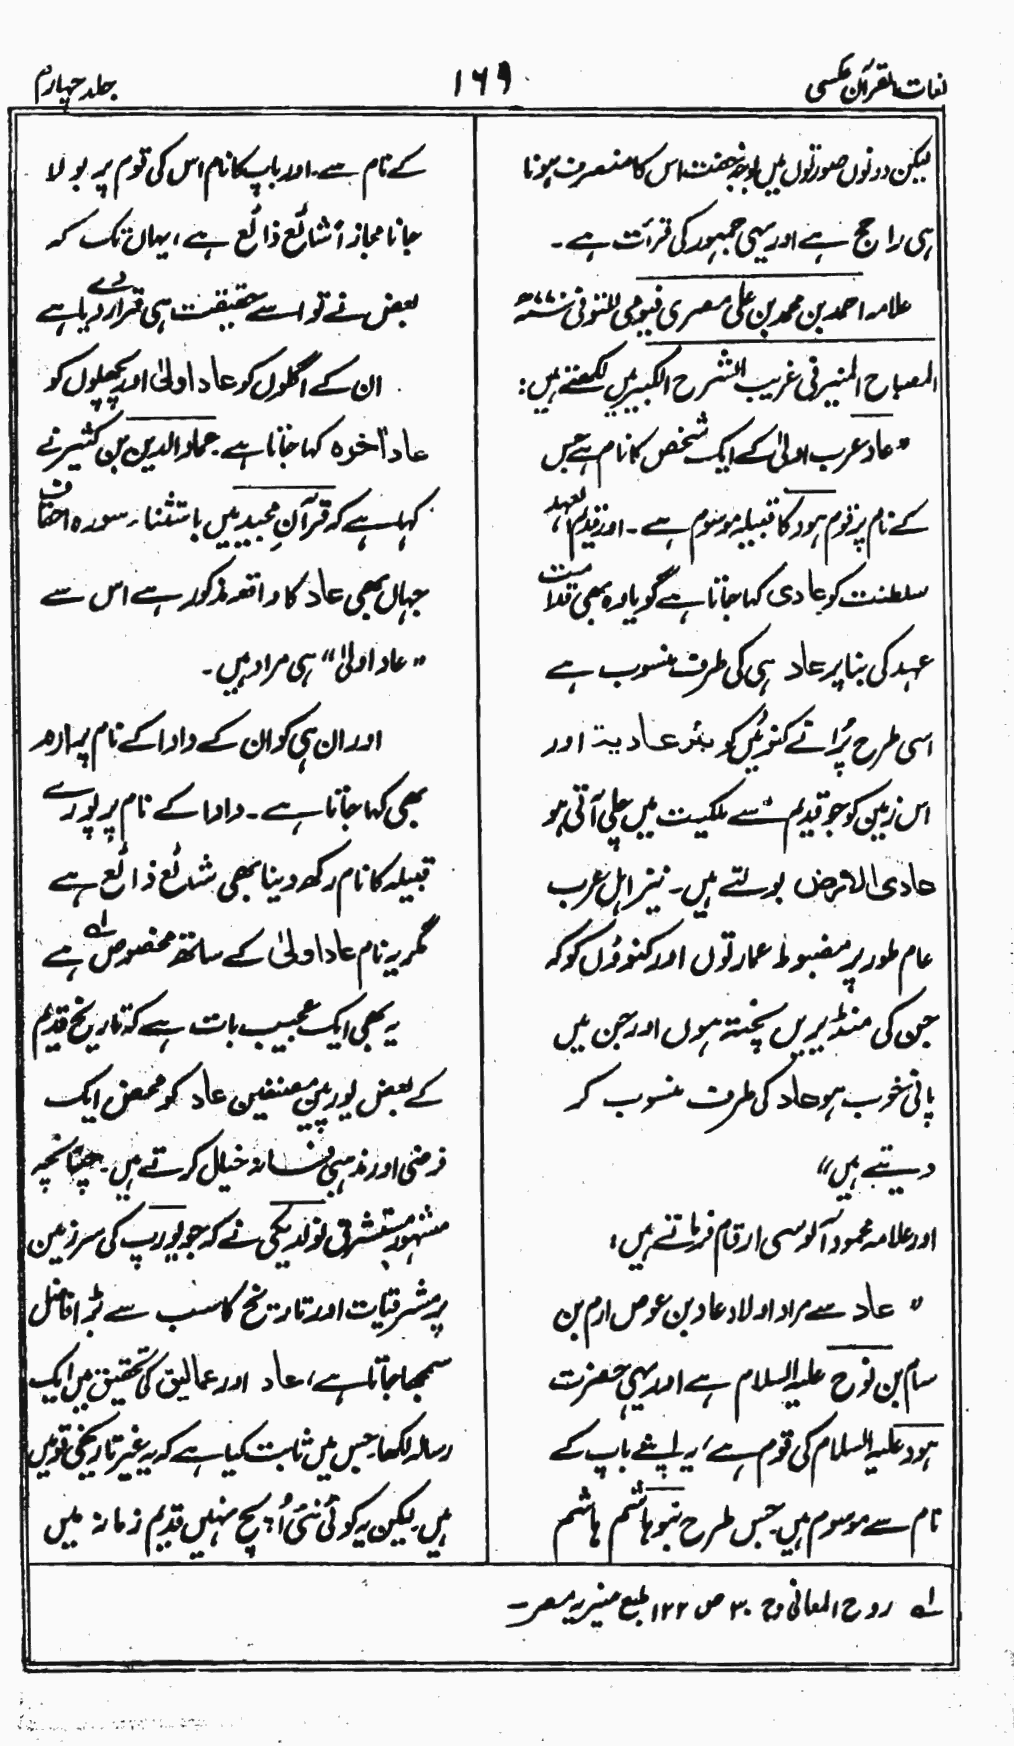 لغات القرآن عکسی
۱۶۹
جلد چہارم
لیکن دونوں صورتوں میں بوجہ خفت اس کا منصرف ہونا
ہی راجح ہے اور یہی جمہور کی قرائت ہے۔
علامہ احمد بن محمد بن علی مصری فیومی المتوفی ۷۷۰ھ
المصباح المنیر فی غریب الشرح الکبیر میں لکھتے ہیں:
"عاد عرب اولیٰ کے ایک شخص کا نام ہے جس
کے نام پر قوم ہود کا قبیلہ موسوم ہے۔ اور قدیم العہد
سلطنت کو عادی کہا جاتا ہے گویا وہ بھی قدامت
عہد کی بنا پر عاد ہی کی طرف منسوب ہے
اسی طرح پُرانے کنوئیں کو بئر عادیۃ اور
اس زمین کو جو قدیم سے ملکیت میں چلی آتی ہو
عادی الارض بولتے ہیں۔ نیز اہل عرب
عام طور پر مضبوط عمارتوں اور کنوؤں کو کہ
جن کی منڈیریں پختہ ہوں اور جن میں
پانی خوب ہو عاد کی طرف منسوب کر
دیتے ہیں"
اور علامہ محمود آلوسی ارقام فرماتے ہیں:
"عاد سے مراد اولاد عاد بن عوص ارم بن
سام بن نوح علیہ السلام ہے اور یہی حضرت
ہود علیہ السلام کی قوم ہے، یہ اپنے باپ کے
نام سے موسوم ہیں۔ جس طرح بنو ہاشم ہاشم
کے نام سے۔ اور باپ کا نام اس کی قوم پر بولا
جانا مجازاً شائع ذائع ہے، یہاں تک کہ
بعض نے تو اسے حقیقت ہی قرار دے دیا ہے
ان کے اگلوں کو عاد اولیٰ اور پچھلوں کو
عاد آخرہ کہا جاتا ہے۔ عماد الدین بن کثیر نے
کہا ہے کہ قرآن مجید میں باستثناء سورہ احقاف
جہاں بھی عاد کا واقعہ مذکور ہے اس سے
"عاد اولیٰ" ہی مراد ہیں۔
اور ان ہی کو ان کے دادا کے نام پر ارم
بھی کہا جاتا ہے۔ دادا کے نام پر پورے
قبیلہ کا نام رکھ دینا بھی شائع ذائع ہے
مگر یہ نام عاد اولیٰ کے ساتھ مخصوص ہے لہ
یہ بھی ایک عجیب بات ہے کہ تاریخ قدیم
کے بعض یورپین مصنفین عاد کو محض ایک
فرضی اور مذہبی فسانہ خیال کرتے ہیں۔ چنانچہ
مشہور مستشرق نولدیکی نے کہ جو یورپ کی سرزمین
پر مشرقیات اور تاریخ کا سب سے بڑا فاضل
سمجھا جاتا ہے، عاد اور عمالیق کی تحقیق میں ایک
رسالہ لکھا جس میں ثابت کیا ہے کہ یہ غیر تاریخی قومیں
ہیں۔ لیکن یہ کوئی نئی اُپچ نہیں قدیم زمانہ میں
لہ روح المعانی ج ۳۰ ص ۱۲۲ طبع منیریہ مصر